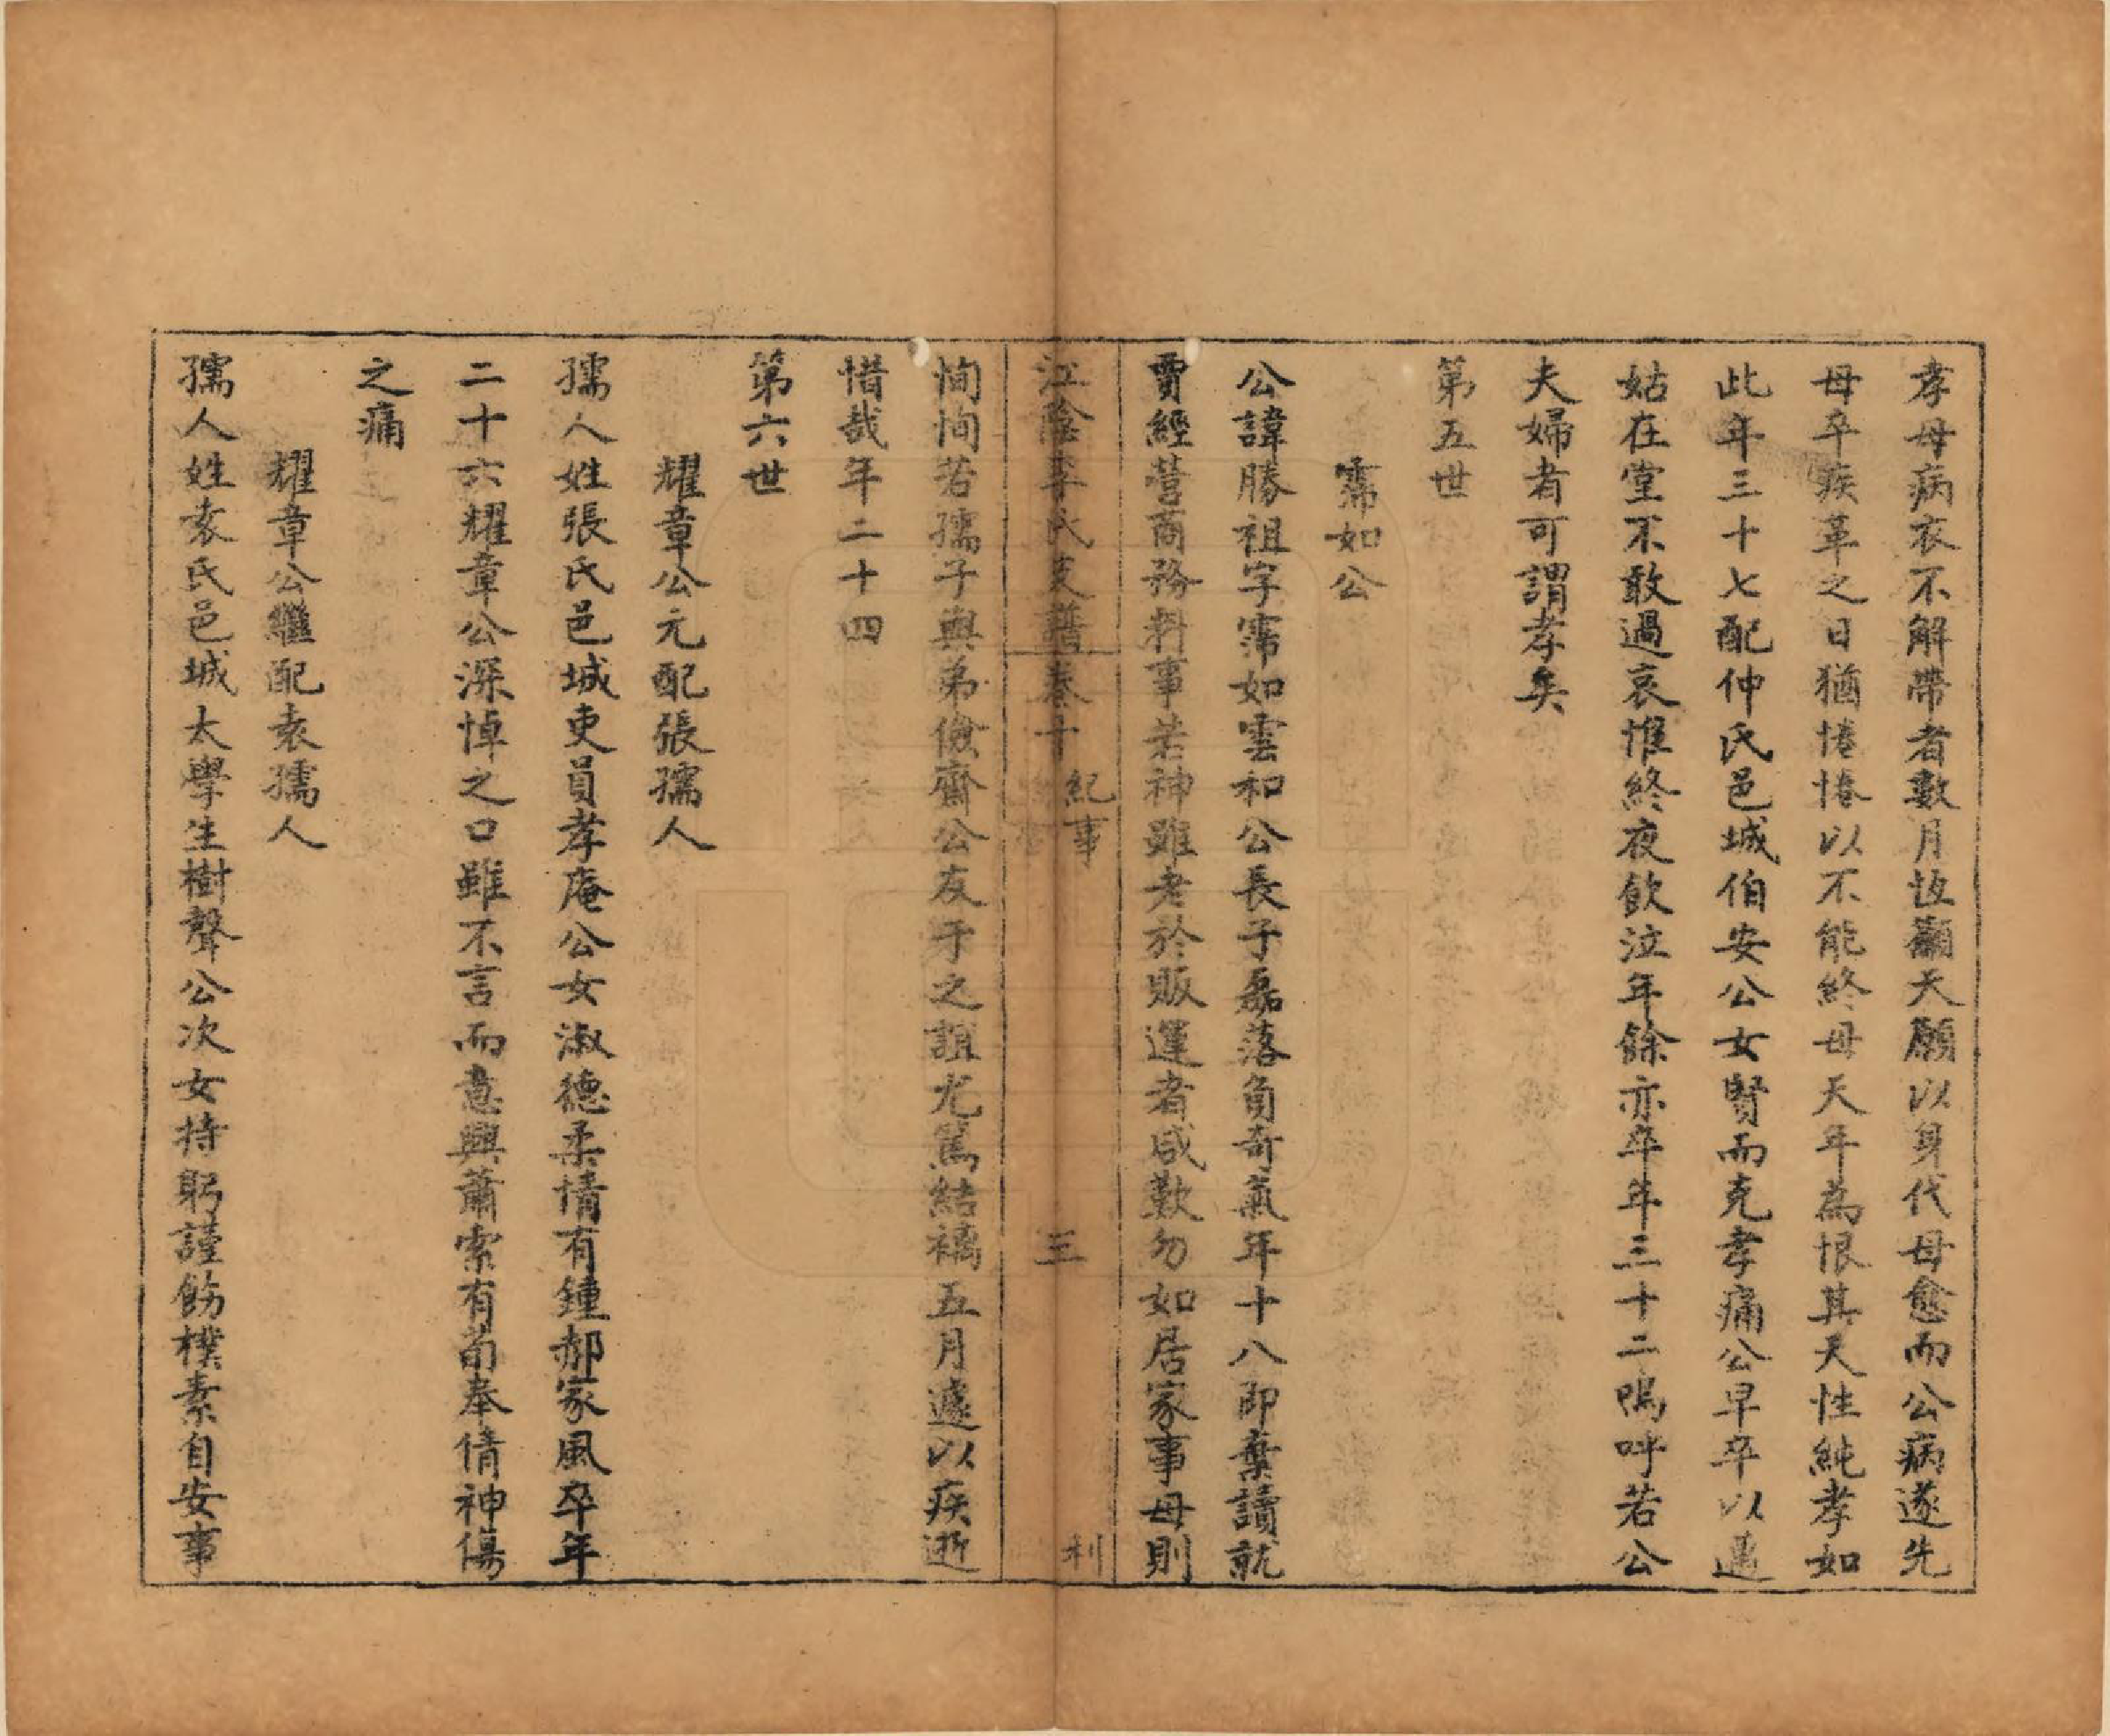 孝母病衣不解帶者數月恆籲天願以身代母愈而公病遂先
母卒疾革之日猶惓惓以不能終母天年為恨其天性純孝如
此年三十七配仲氏邑城伯安公女賢而克孝痛公早卒以邁
姑在堂不敢過哀惟終夜飲泣年餘亦卒年三十二嗚呼若公
夫婦者可謂孝矣
第五世
霈如公
公諱勝祖字霈如雲和公長子磊落負奇氣年十八即棄讀就
賈經營商務料事若神雖老於販運者咸歎勿如居家事母則
江陰李氏支譜卷十 紀事 三 利
恂恂若孺子與弟儉齋公友于之誼尤篤結褵五月遽以疾逝
惜哉年二十四
第六世
耀章公元配張孺人
孺人姓張氏邑城吏員孝庵公女淑德柔情有鍾郝家風卒年
二十六耀章公深悼之口雖不言而意興蕭索有荀奉倩神傷
之痛
耀章公繼配袁孺人
孺人姓袁氏邑城太學生樹聲公次女持躬謹飭樸素自安事